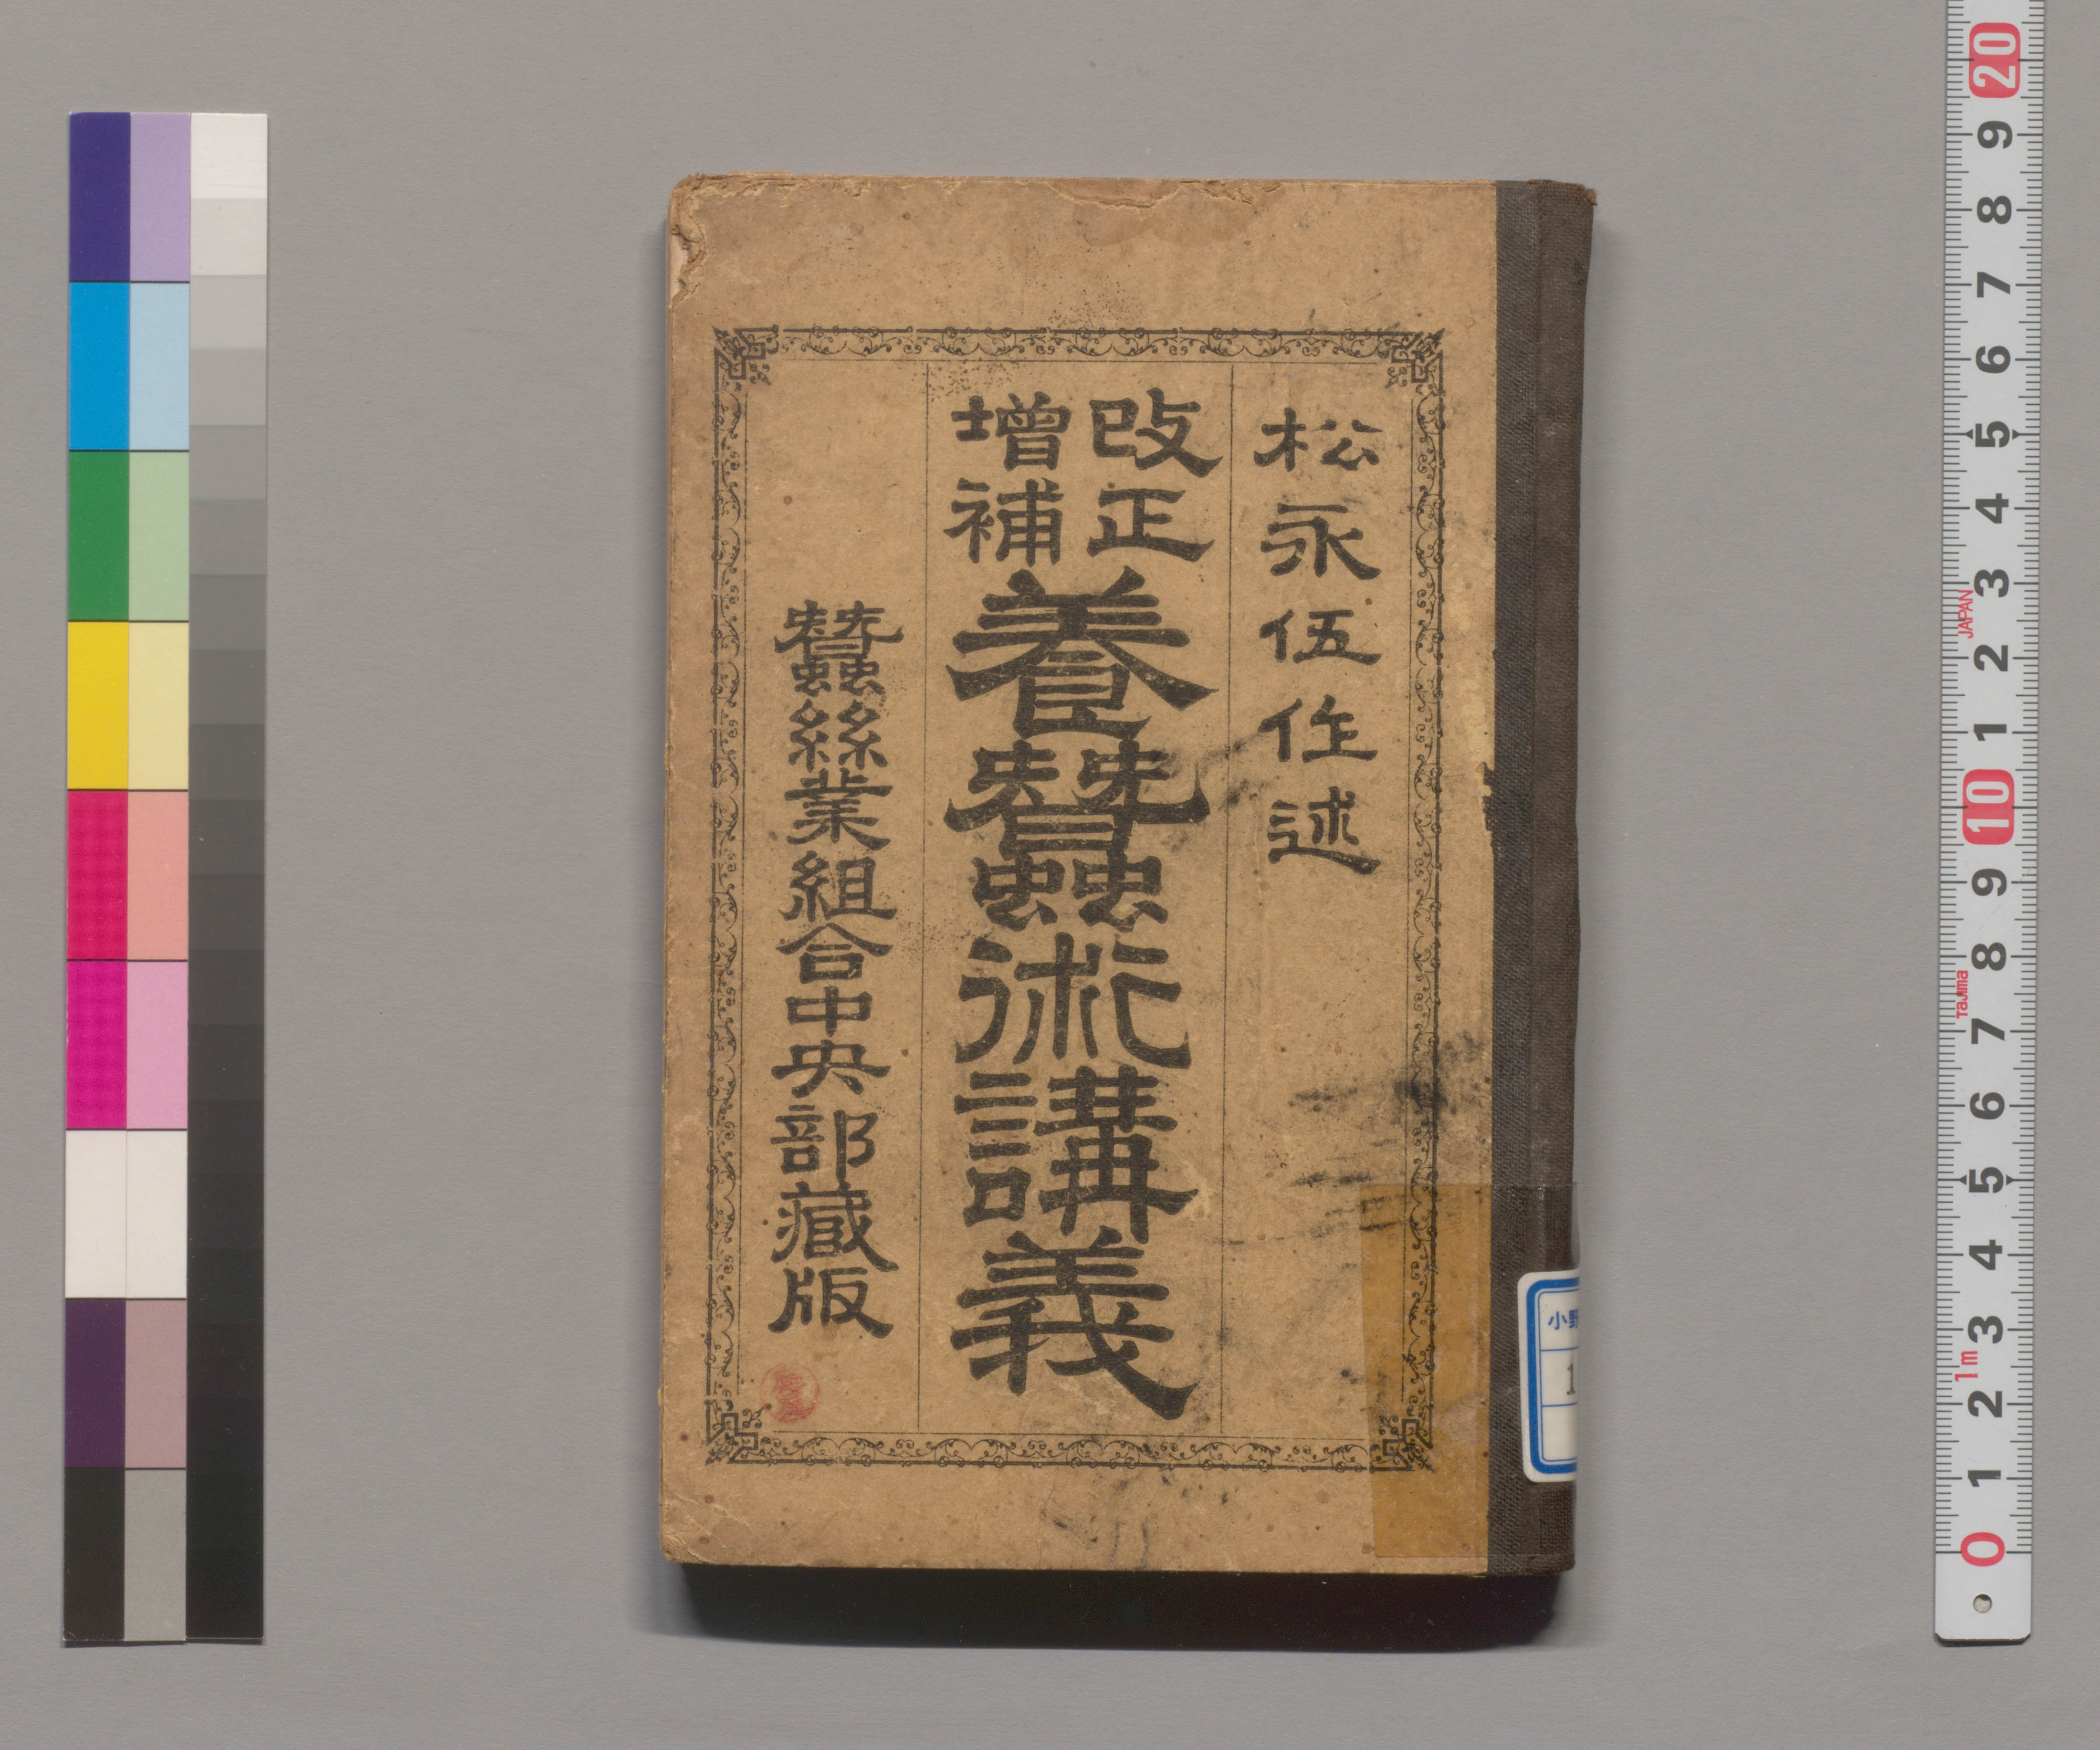 松永伍作述
改正
增補
養蠶術講義
蠶絲業組合中央部藏版
小野
1
20
9
8
7
6
5
4
3
JAPAN
2
1
10
9
8
Tajima
7
6
5
4
3
1m
2
1
0